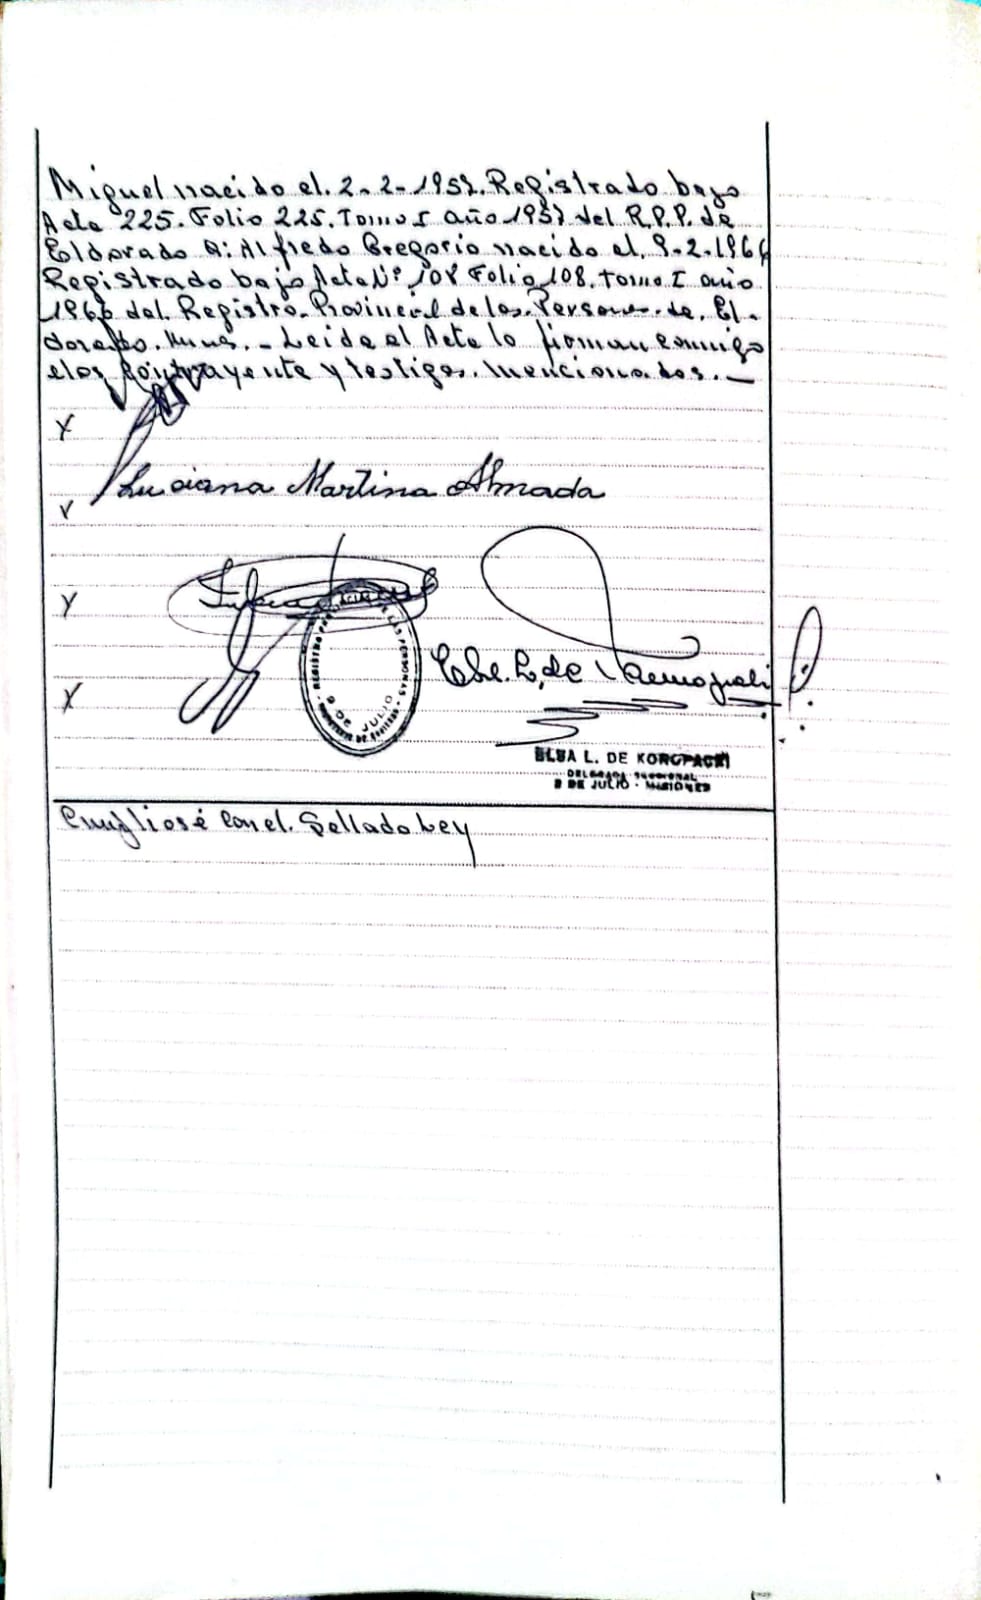 Miguel nacido el. 2-2-1957. Registrado bajo
Acta 225. Folio 225. Tomo I año 1957 del R.P.P. de
Eldorado a: Alfredo Gregorio nacido el, 9-2-1966
Registrado bajo Acta Nº 108 Folio 108. Tomo I año
1966 del Registro. Provincial de las. Personas. de. El-
dorado. - Leida el Acta lo firman conmigo
elos contrayente y testigos. mencionados. —
X
Luciana Martina Almada
X
REGISTRO PROVINCIAL DE LAS PERSONAS
9 DE JULIO
X
ELSA L. DE KOROPACKI
DELEGADA SECCIONAL
9 DE JULIO - MISIONES
Cumpliosé Con el. Sellado Ley